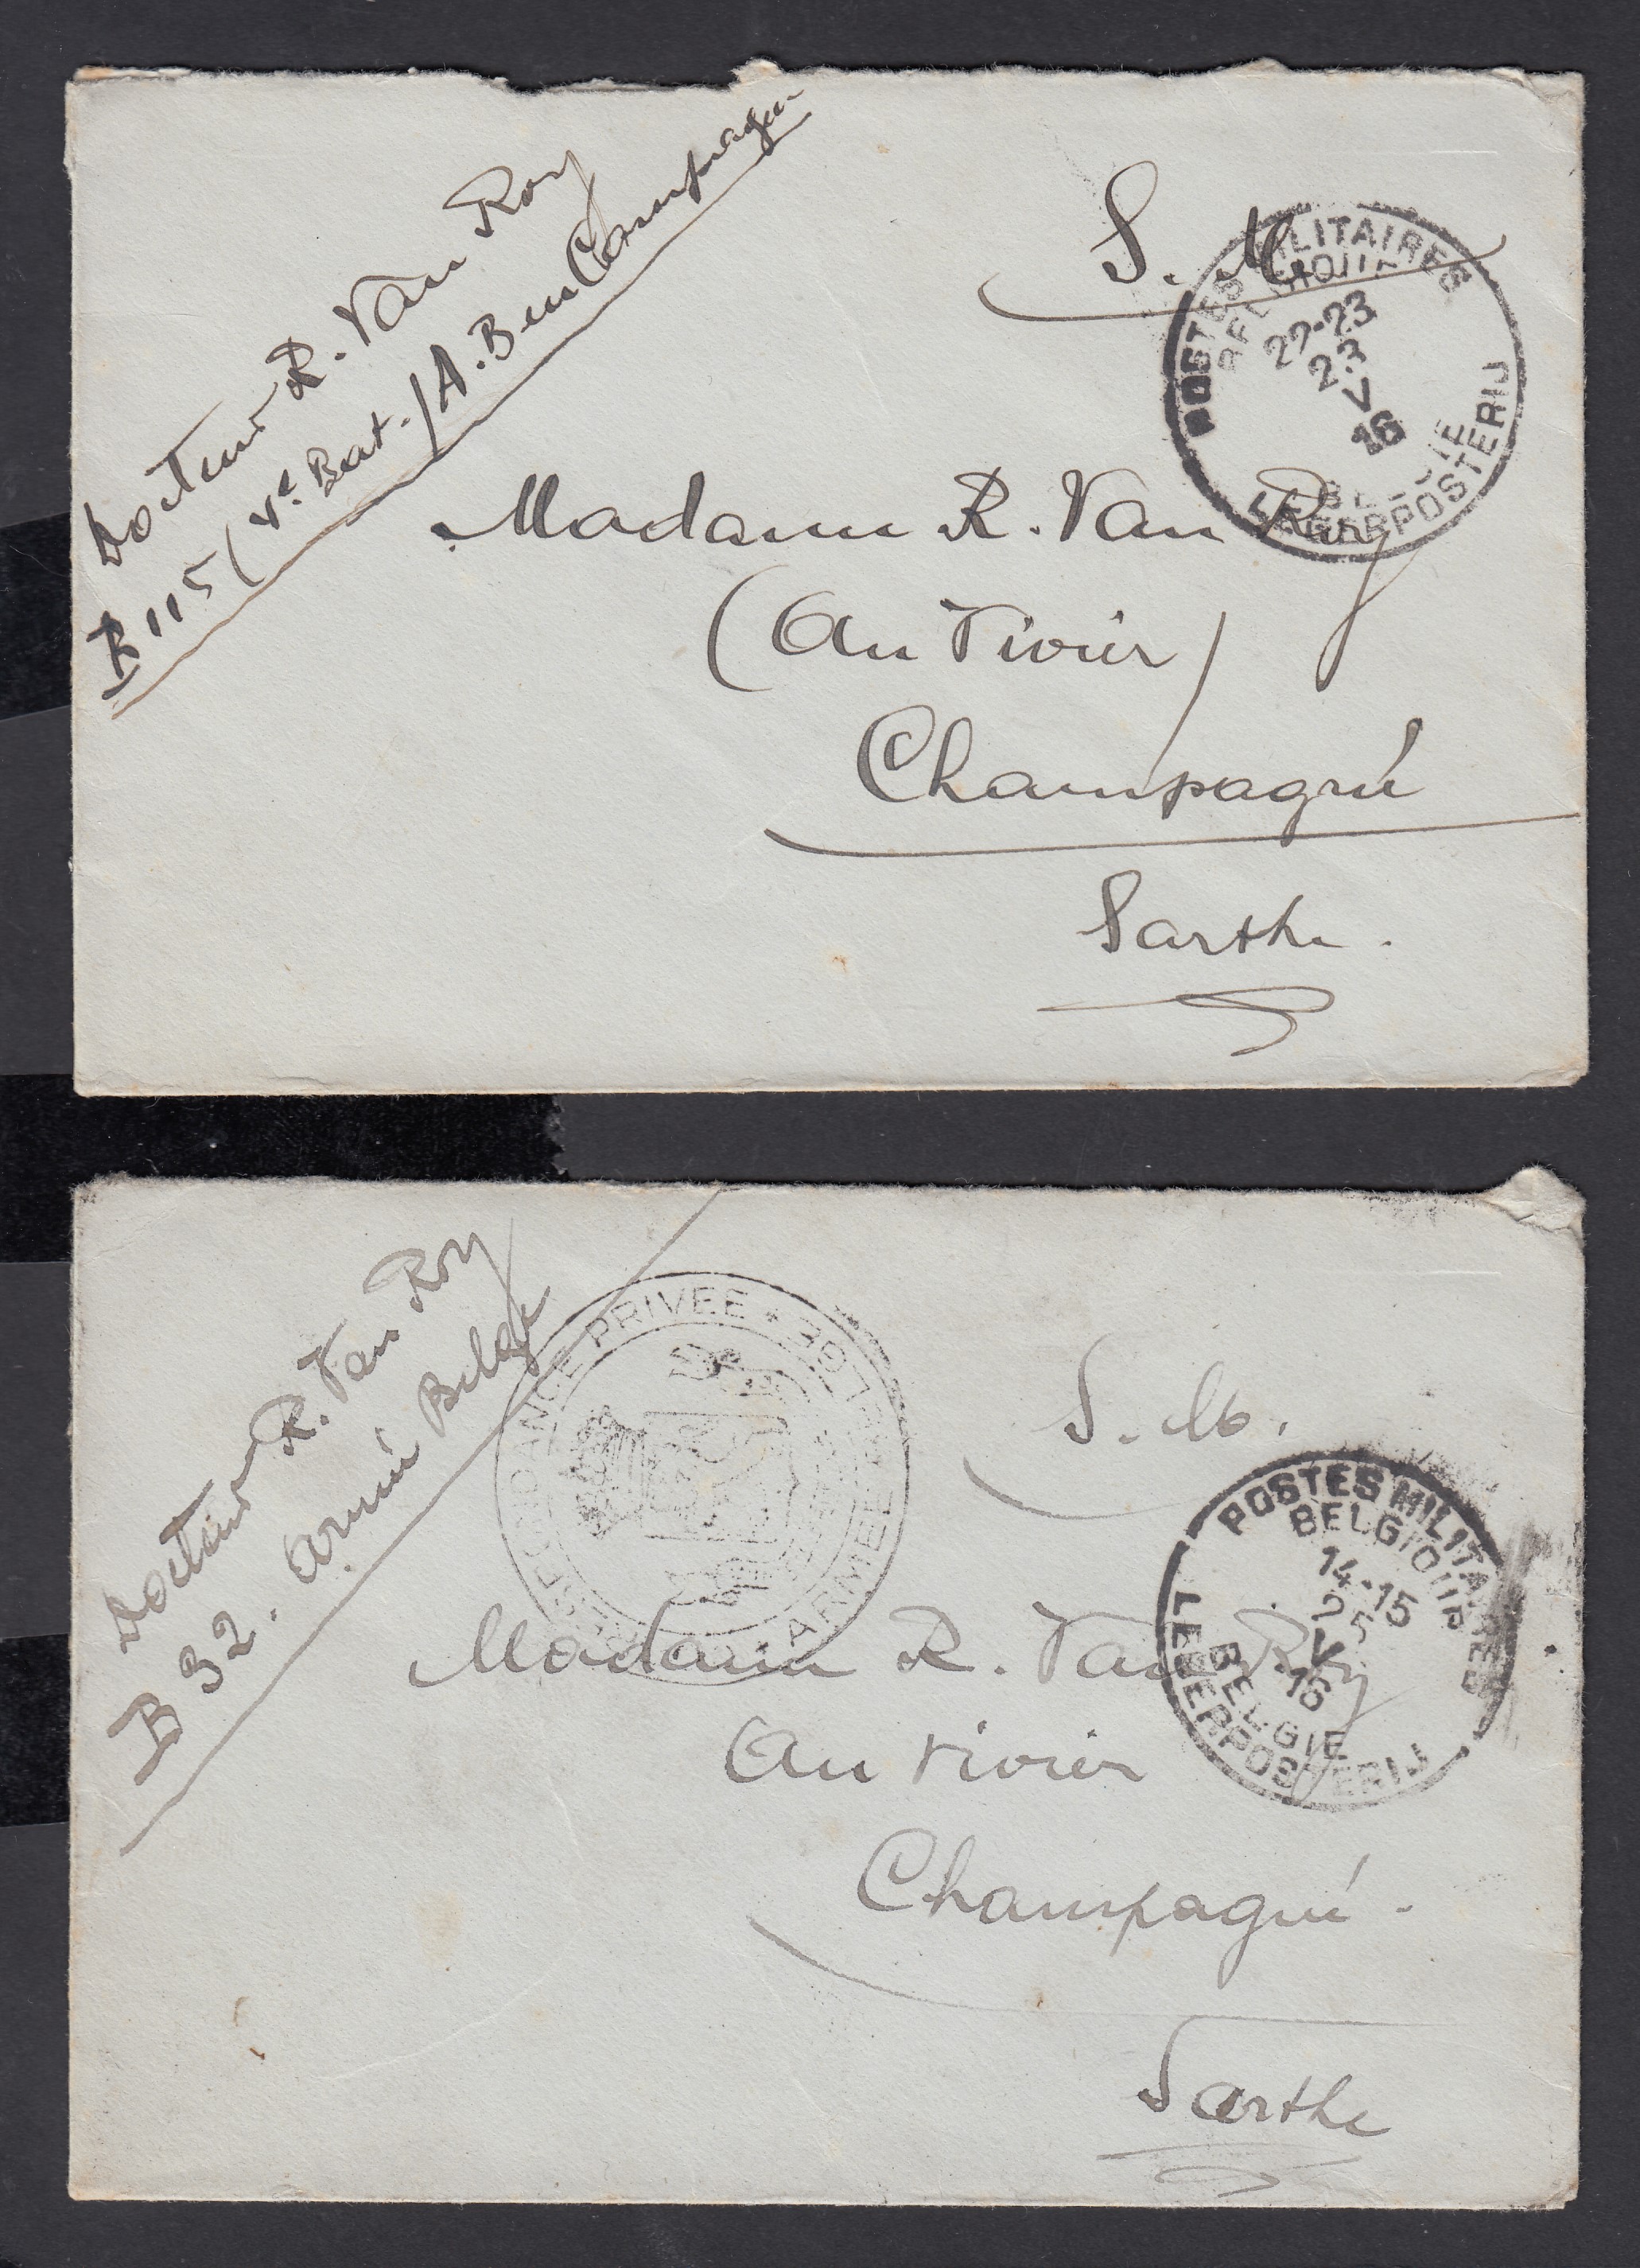 Docteur R. Van Roy
B 115 (Ve Bat. / A. B. en Campagne
S. M.
POSTES MILITAIRES
BELGIQUE
22-23
23
V
16
BELGIE
LEGERPOSTERIJ
Madame R. Van Roy
(Au Vivier)
Champagné
Sarthe.
Docteur R. Van Roy
B 92. Armée Belge
CORRESPONDANCE PRIVEE
ARMEE
S. M.
POSTES MILITAIRES
BELGIQUE
14-15
25
V
16
BELGIE
LEGERPOSTERIJ
Madame R. Van Roy
Au Vivier
Champagné.
Sarthe